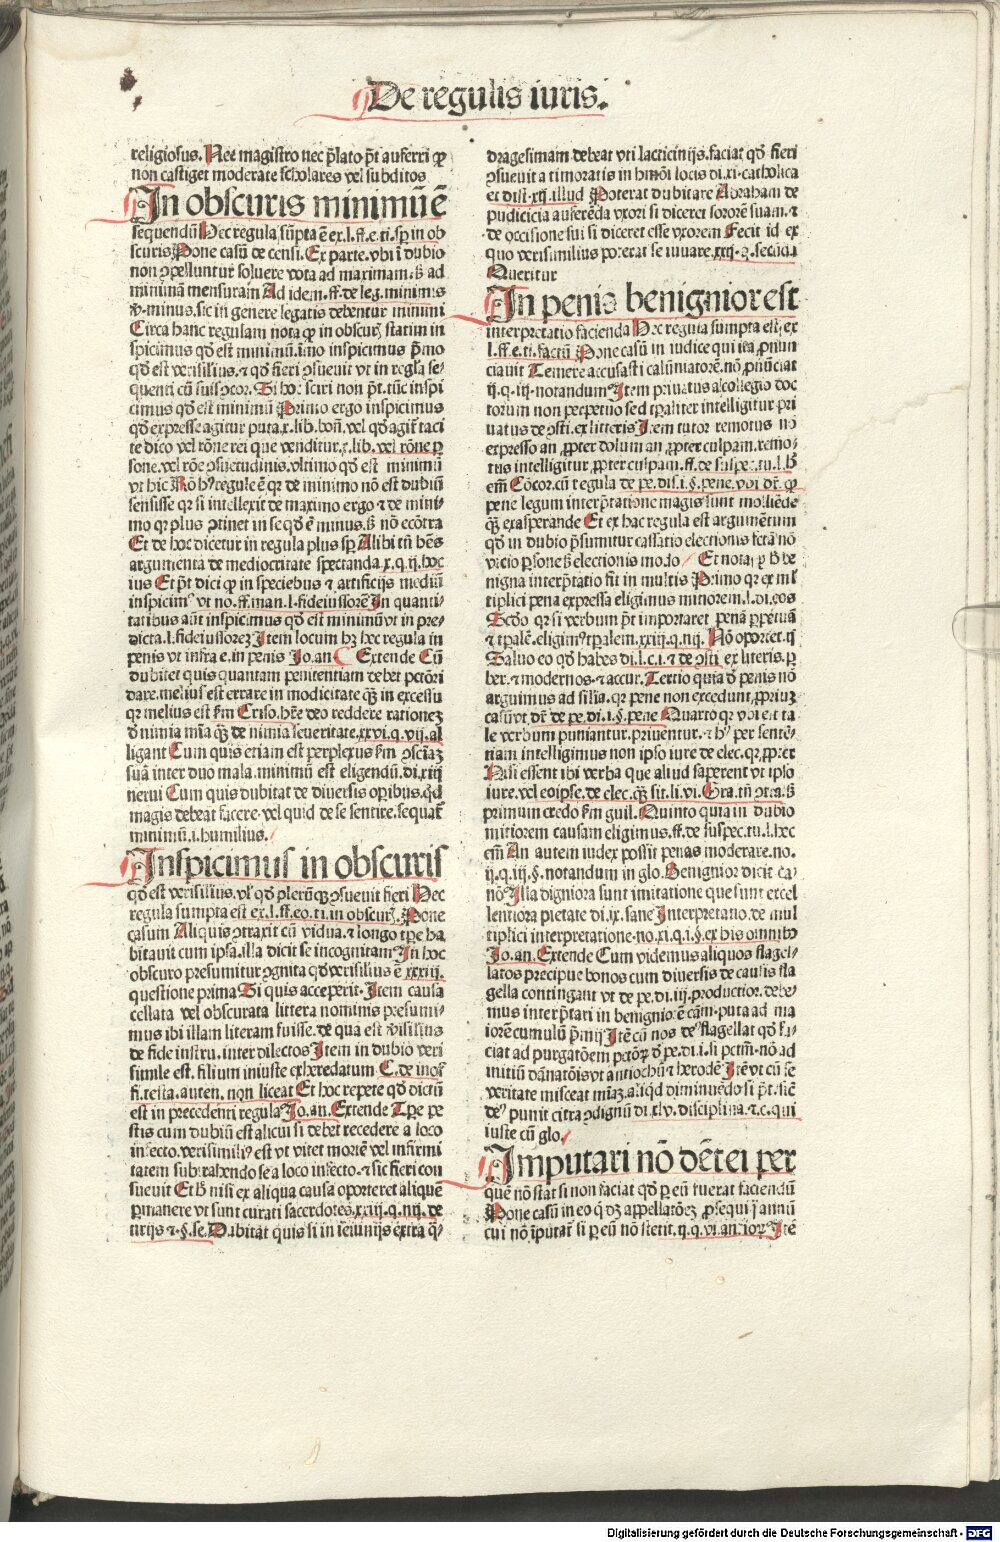 De regulis iuris.
religiosus. Nec magistro nec p̄lato p̄t auferri qꝛ
non castiget moderate scholares vel subditos
In obscuris minimū ē
sequendū Hec regula sūpta ē ex.l.ff.e.ti.sp̄ in ob
scuris Pone casū de censi. Ex parte. vbi ī dubio
non ꝯpelluntur soluere vota ad maximam. ß ad
minimā mensuram Ad idem.ff.de leg. minimis
minus. sic in genere legatis debentur minimi
Circa hanc regulam nota ꝙ in obscurꝭ statim in
spicimus qd̄ est minimū. imo inspicimus p̄mo
qd̄ est verisilius. ⁊ qd̄ fieri ꝯsueuit vt in regła se⸗
quenti
cimus qd̄ est minimū Primo ergo inspicimus
qd̄ expresse agitur puta
te dico vel rōne rei que venditur
sone. vel rōe ꝯsuetudinis. vltimo qd̄ est minimū
sensisse qꝛ si intellexit de maximo ergo ⁊ de mini
mo qꝛ plus ꝯtinet in se qd̄ ē minus. ß nō ecōtra
Et de hoc dicetur in regula plus sp̄ Alibi tn̄ hēs
argumenta de mediocritate spectanda x.q.ij. hoc
ius Et p̄t dici ꝙ in speciebus ⁊ artificijs mediū
inspicimꝰ vt no.ff.man.l.fideiussorē In quanti⸗
tatibus aūt inspicimus qd̄ est minimū vt in pre⸗
dicta.l.fideiussoreꝫ Item locum hꝫ hec regula in
penis vt infra e. in penis Jo.an. C Extende Cū
dubitet quis quantam penitentiam debet pctōri
dare. melius est errare in modicitate q̄ꝫ in excessu
qꝛ melius est ẜm Criso. hēre deo reddere rationeꝫ
ꝓ nimia mīa q̄ꝫ de nimia seueritate. xxvi.q.vij. al
ligant Cum quis etiam est perplexus ẜm ꝯsciaꝫ
suā inter duo mala. minimū est eligendū. di.xiij
nerui Cum quis dubitat de diuersis oꝑibus. qd̄
magis debeat facere. vel quid de se sentire. sequat̄
minimū .i. humilius.
Inspicimus in obscuris
qd̄ est verisilius. vl' qd̄ plerūqꝫ ꝯsueuit fieri Hec
regula sumpta est ex.l.ff.eo.ti. in obscurꝭ. Pone
casum Aliquis ꝯtraxit cū vidua. ⁊ longo tꝑe ha
bitauit cum ipsa. illa dicit se incognitam In hoc
obscuro presumitur ꝯgnita qd̄ verisilius ē xxxiij.
questione prima Si quis acceperit. Item causa
cellata vel obscurata littera nominis presumi⸗
mus ibi illam literam fuisse. de qua est v̓isilius
de fide instru. inter dilectos Item in dubio veri
simile est. filium iniuste exheredatum C. de inof
fi. testa. auten. non liceat Et hoc repete qd̄ dictū
est in precedenti regula Jo.an. Extende Tꝑe pe
stis cum dubiū est alicui si debet recedere a loco
infecto. verisimiliꝰ est vt vitet mortē vel infirmi
tatem subtrahendo se a loco infecto. ⁊ sic fieri con
sueuit Et ß nisi ex aliqua causa oporteret aliquē
ꝑmanere vt sunt curati sacerdotes. xxiij.q.iiij. de
tirijs ⁊.§.se. Dubitat quis si in ieiunijs extra q̄⸗
dragesimam debeat vti lacticinijs. faciat qd̄ fieri
ꝯsueuit a timoratis in hmōi locis di.xi. catholica
et dist.xij. illud Poterat dubitare Abraham de
pudicicia auferēda vxori si diceret sororē suam. ⁊
de occisione sui si diceret esse vxorem Fecit id ex
quo verisimilius poterat se iuuare. xxij.q. secūda
Queritur
In penis benignior est
interpretatio facienda Hec regula sumpta est ex
l.ff.e.ti. factū Pone casū in iudice qui ita ꝓnun
ciauit Temere accusasti calūniatorē. nō ꝓnūciat
ij.q.iij. notandum Item priuatus a collegio doc
torum non perpetuo sed tꝑaliter intelligitur pri
uatus de ꝯsti. ex litteris Item tutor remotus nō
expresso an ꝓpter dolum an ꝓpter culpam. remo⸗
tus intelligitur ꝓpter culpam. ff. de suspec. tu.l.ß
pene legum interp̄tatione magis sunt molliēde
q̄ꝫ exasperande Et ex hac regula est argumētum
qd̄ in dubio p̄sumitur cassatio electionis
vicio ꝑsone ß electionis modo Et notaꝫ
nigna interp̄tatio fit in multis Primo qꝛ ex ml'
tiplici pena expressa eligimus minorem. l. di. eos
Scd̓o qꝛ si verbum p̄t importaret penā ꝑpetuā
⁊ tꝑalē. eligimꝰ tꝑalem. xxiij.q.iiij. Nō oportet. ij
Saluo eo qd̄ habes di.l.c.i. ⁊ de ꝯsti ex literis. ꝑ
ber. ⁊ modernos. ⁊ accur. Tertio quia ꝺ penis nō
arguimus ad silia. qꝛ pene non excedunt ꝓpriuꝫ
casū vt de pe. di.i.§. pene Quarto qꝛ vbi est ta
le verbum puniantur. priuentur. ⁊ hꝰ per sentē⸗
tiam intelligimus non ipso iure de elec. qꝛ ꝓpter
Nisi essent ibi verba que aliud saperent vt ipso
iure. vel eoipse. de elec. q̄ꝫ sit. li.vi. Gra. tn̄ ꝯtra. ß
primum credo ẜm guil. Quinto quia in dubio
mitiorem causam eligimus. ff. de suspec. tu.l. hec
em̄ An autem iudex possit penas moderare. no.
ij.q.iij.§. notandum in glo. Benignior dicit ca⸗
nō Illa digniora sunt imitatione que sunt excel
lentiora pietate di.ix. sane Interpretatio. de mul
tiplici interpretatione. no. xi.q.i.§. ex his omnibꝰ
Jo.an. Extende Cum videmus aliquos flagel⸗
latos precipue bonos cum diuersis de causis fla
gella contingant vt de pe. di.iij. productior. debe⸗
mus interp̄tari in benigniorē cām. puta ad ma
iorē cumulū p̄mij Itē cū nos deꝰ flagellat qd̄ fa⸗
ciat ad purgatōem pctōrꝫ ꝺ pe. di.i. si pctm̄. nō ad
initiū dānatōis vt antiochū ⁊ herodē Itē vt cū se
veritate misceat mīaꝫ. aliqd diminuēdo
deꝰ punit citra ꝯdignū di.xlv. disciplina. ⁊.c. qui
iuste cū glo.
Imputari nō debet ei per
quē nō stat si non faciat qd̄ ꝑ eū fuerat faciendū
Pone casū in eo q̄ dꝫ appellatōeꝫ ꝓsequi ij annū
cui nō īputat̄ si ꝑ eū nō stetit. ij.q.vi. anteriorꝫ Itē
Digitalisierung gefördert durch die Deutsche Forschungsgemeinschaft - DFG